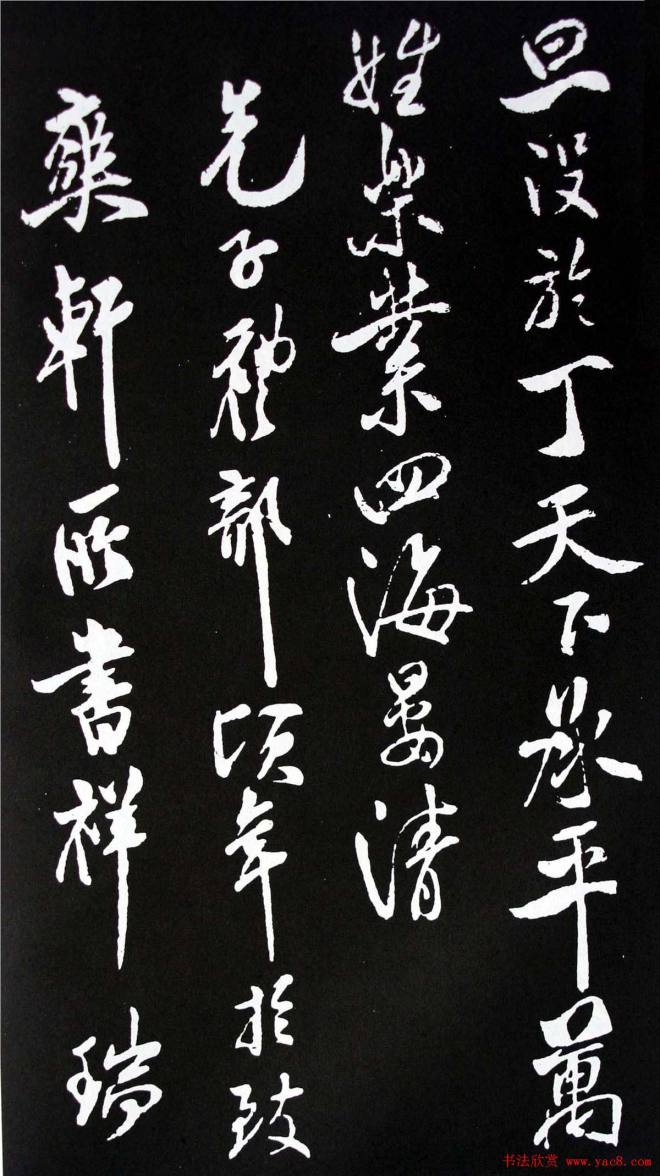 旦没於丁天下承平萬
姓樂業四海晏清
先子礼部頃年於致
爽軒所書祥瑞
书法欣赏 www.yac8.com